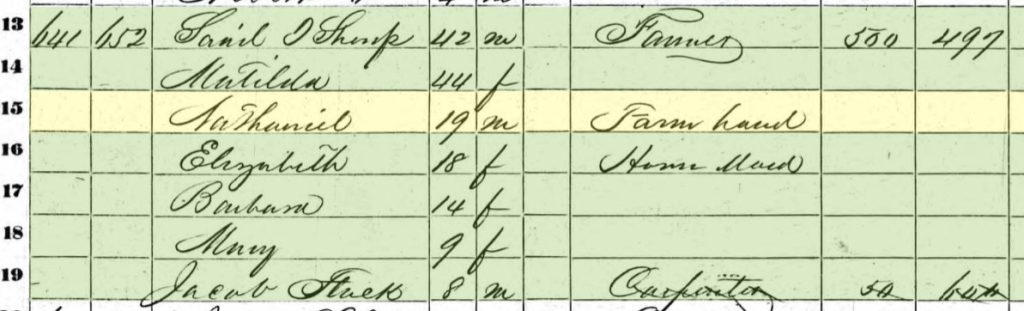 13 641 652 Sharp 42 m Farmer 500 497
14 Matilda 44 f
15 Nathaniel 19 m Farm hand
16 Elizabeth 18 f House Maid
17 Barbara 14 f
18 Mary 9 f
19 Jacob 8 m Carpenter 50